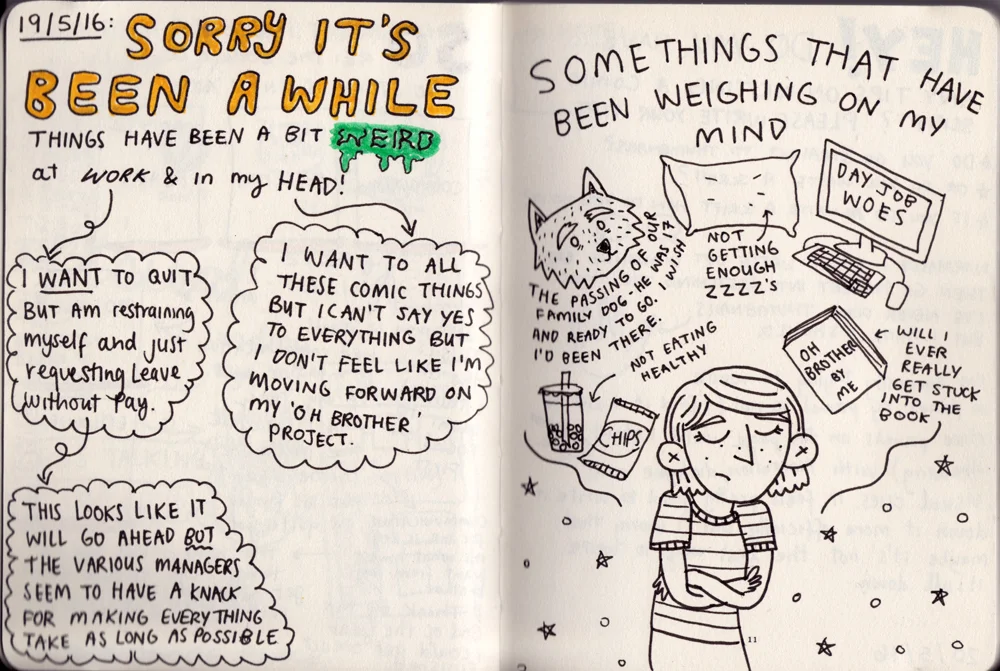 19/5/16:
SORRY IT'S
BEEN A WHILE
THINGS HAVE BEEN A BIT WEIRD
at WORK & in my HEAD!
I WANT TO QUIT
BUT AM restraining
myself and just
requesting Leave
Without Pay.
I WANT TO ALL
THESE COMIC THINGS
BUT I CAN'T SAY YES
TO EVERYTHING BUT
I DON'T FEEL LIKE I'M
MOVING FORWARD ON
MY 'OH BROTHER
PROJECT.
THIS LOOKS LIKE IT
WILL GO AHEAD BUT
THE VARIOUS MANAGERS
SEEM TO HAVE A KNACK
FOR MAKING EVERYTHING
TAKE AS LONG AS POSSIBLE
SOME THINGS THAT HAVE
BEEN WEIGHING ON MY
MIND
THE PASSING OF OUR
FAMILY DOG - HE WAS 17
AND READY TO GO. I WISH
I'D BEEN THERE.
NOT
GETTING
ENOUGH
ZZZZ'S
DAY JOB
WOES
NOT EATING
HEALTHY
CHIPS
OH
BROTHER
BY
ME
WILL I
EVER
REALLY
GET STUCK
INTO THE
BOOK
11